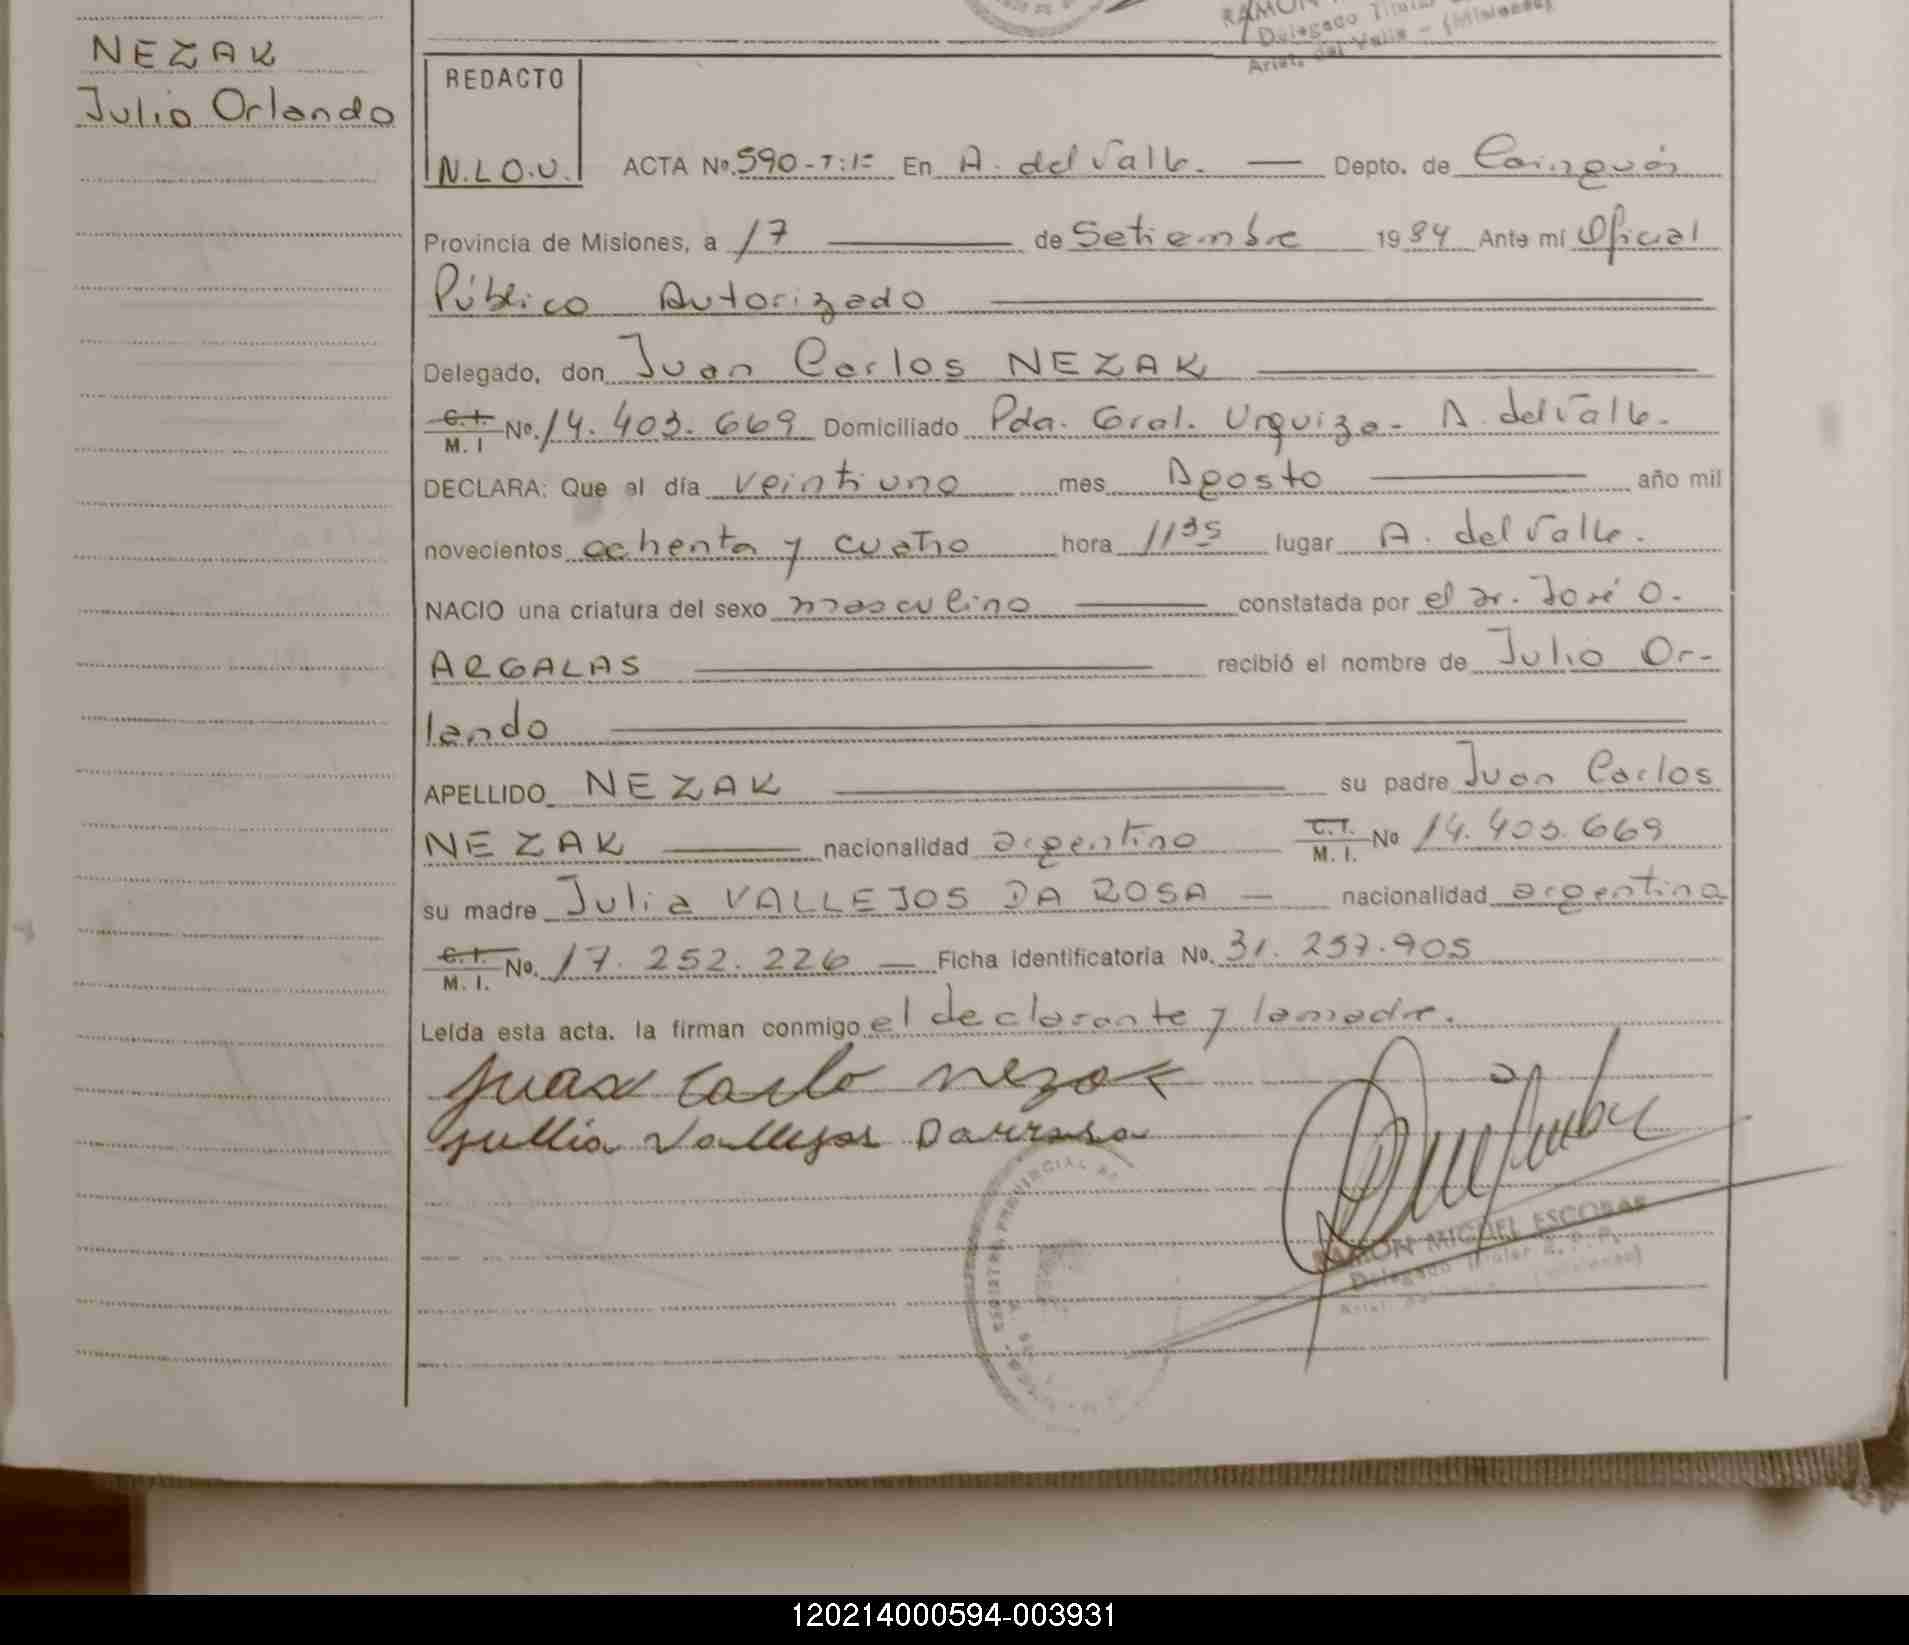 NEZAK
Julio Orlando
RAMON
Delegado Titular
Arist. del Valle - (Misiones)
REDACTO
N.L.O.U.
ACTA No. 590-T:1º En A. del Valle. — Depto. de Cainguás
Provincia de Misiones, a 17 — de Setiembre 1984 Ante mí Oficial
Público Autorizado
Delegado, don Juan Carlos NEZAK
C.I. / M.I No. 14.403.669 Domiciliado Pda. Gral. Urquiza - A. del Valle.
DECLARA: Que el día veintiuno mes Agosto — año mil
novecientos ochenta y cuatro hora 11 35 lugar A. del Valle.
NACIO una criatura del sexo masculino — constatada por el Dr. José O.
ARGALAS — recibió el nombre de Julio Or-
lando
APELLIDO NEZAK — su padre Juan Carlos
NEZAK — nacionalidad argentino C.I. / M. I. No 14.403.669
su madre Julia VALLEJOS DA ROSA — nacionalidad argentina
C.I. / M. I. No. 17.252.226 — Ficha identificatoria No. 31.257.905
Leída esta acta, la firman conmigo el declarante y la madre.
Juan Carlo Nezak
Jullia Vallejos Darrosa
RAMON MIGUEL ESCOBAR
Delegado Titular R. P. P.
120214000594-003931